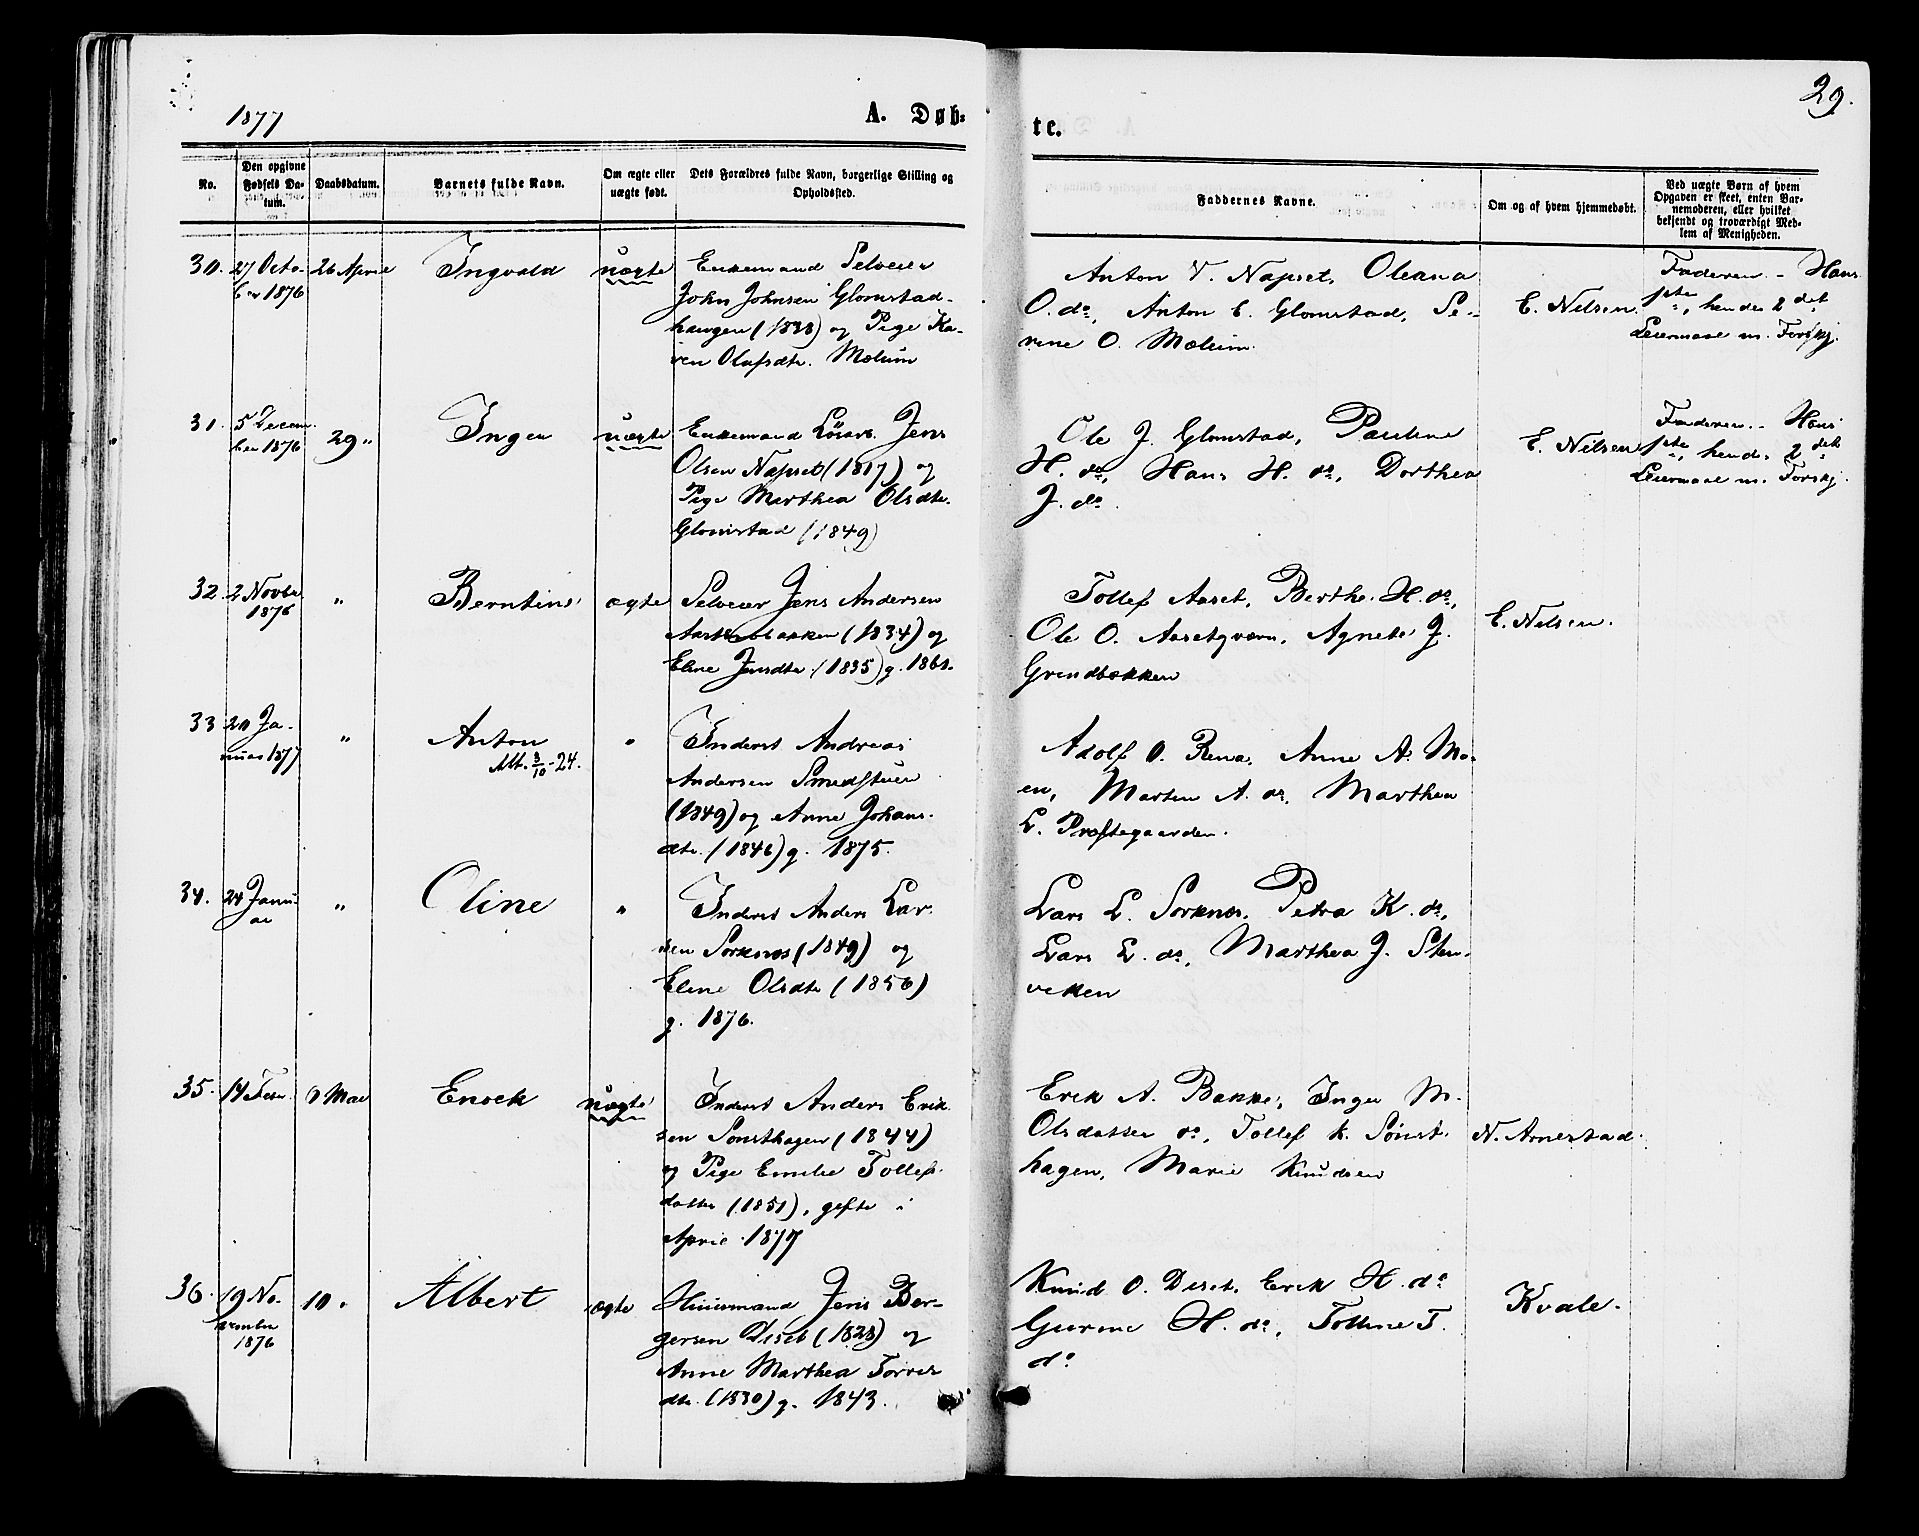 29.
1877
A. Døb-
te.
No.
Den opgivne Fødsels Da-tum.
Daabsdatum.
Barnets fulde Navn.
Om ægte eller uægte født.
Dets Forældres fulde Navn, borgerlige Stilling og Opholdssted.
Faddernes Navne.
Om og af hvem hjemmedøbt.
Ved uægte Børn af hvem Opgaven er skeet, enten Bar-nemoderen, eller hvilket bekjendt og troværdigt Med-lem af Menigheden.
30. 27 Octo- 26 April Ingvald uægte Enkemand Selveier
ber 1876
John Johnsen Glomstad-
haugen (1838) og Pige Ka-
ren Olafsdtr. Mælum
Anton T. Næpset, Oleana
O. do, Anton E. Glomstad, Se-
rine O. Mælum.
E. Nilsen.
Faderen - Hans
1ste, hendes 2det
Leiermaal m. Forskj.
31. 5 Decem- 29 " Inger uægte Enkemand Jens
ber 1876
Olsen Næpset (1817) og
Pige Marthea Olsdtr.
Glomstad (1849)
Ole J. Glomstad, Pauline
H. do, Hans H. do, Dorthea
J. do.
E. Nilsen
Faderen.- Hans
1ste, hendes 2det
Leiermaal m. Forskj.
32. 2 Novbr " Berntine ægte Selveier Jens Andersen
1876
(1834) og
Eline Jensdtr. (1835) g. 1861.
Tollef Aaset, Berthe H. do,
Ole O. Aasetqværn, Agnete J.
Grindbakken
E. Nilsen.
33 20 Ja- " Anton " Inderst Andreas
nuar 1877
Alt. 3/10-24.
Andersen Smedstuen
(1849) og Anne Johans-
dtr. (1846) g. 1875.
Adolf O. Rena, Anne A. Mo-
en, Marten A. do, Marthea
L. Præstegaarden.
34. 24 Janu- " Oline " Inderst Anders Lar-
ar
sen Sorknæs (1849) og
Eline Olsdtr (1856)
g. 1876.
Lars L. Sorknæs, Petra K. do,
Lars L. do, Marthea J. Sten-
viken
35. 14 Febr. 6 Mai Enock uægte Inderst Anders Erik-
sen Sønsthagen (1844)
og Pige Emilie Tollefs-
datter (1851), gifte i
April 1877
Erik A. Bakke, Inger M.
Olsdatter do, Tollef K. Sønst-
hagen, Marie Knudsen
N. Arnestad.
36. 19 No- 10 " Albert ægte Huusmand Jens Ber-
vember
1876
gersen Diset (1828) og
Anne Marthea Torver
dtr. (1830) g. 1843.
Knud O. Diset, Erik H. do
Gurine H. do, Tolline T.
do
Kvale.